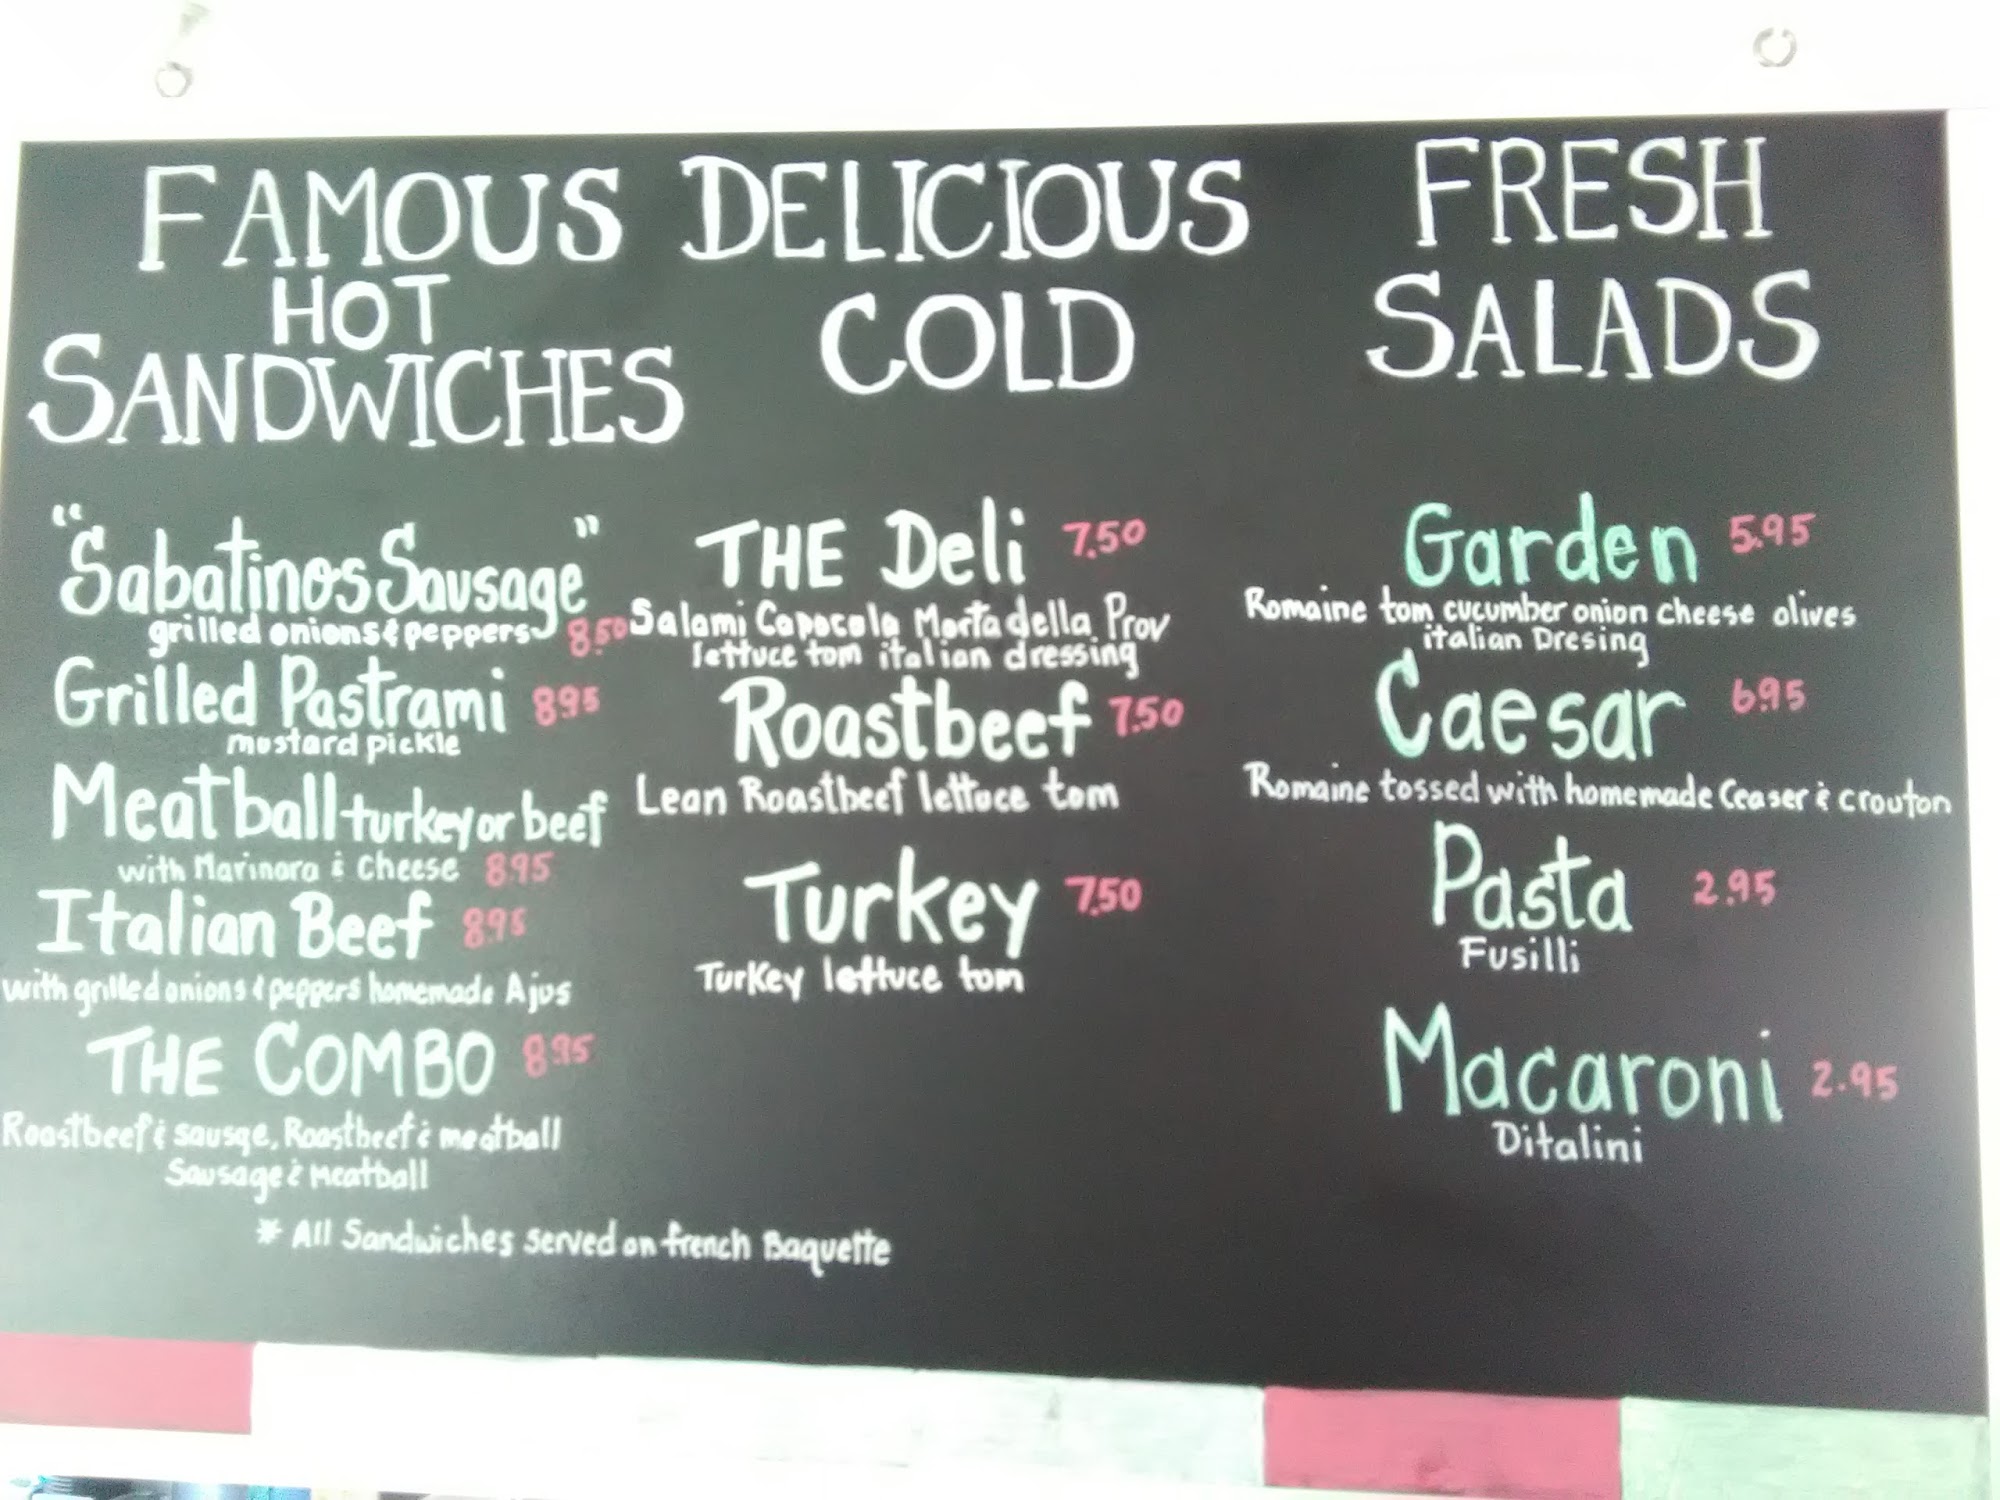 FAMOUS
HOT
SANDWICHES
"Sabatinos Sausage"
grilled onions & peppers 8.50
Grilled Pastrami 8.95
mustard pickle
Meatball turkey or beef
with Marinara & Cheese 8.95
Italian Beef 8.95
with grilled onions & peppers homemade Ajus
THE COMBO 8.95
Roastbeef & sausge, Roastbeef & meatball
Sausage & Meatball
DELICIOUS
COLD
THE Deli 7.50
Salami Capocola Mortadella Prov
lettuce tom italian dressing
Roastbeef 7.50
Lean Roastbeef lettuce tom
Turkey 7.50
Turkey lettuce tom
* All Sandwiches served on french Baquette
FRESH
SALADS
Garden 5.95
Romaine tom cucumber onion cheese olives
italian Dresing
Caesar 6.95
Romaine tossed with homemade Ceaser & crouton
Pasta 2.95
Fusilli
Macaroni 2.95
Ditalini